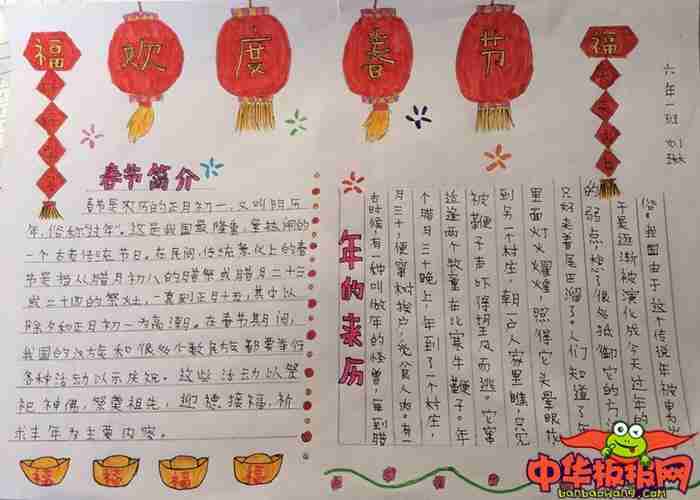 欢度春节
福
福
六年一班 刘琳
春节简介
春节是农历的正月初一，又叫阴历
年，俗称"过年"。这是我国最隆重、最热闹的
一个古老传统节日。在民间，传统意义上的春
节是指从腊月初八的腊祭或腊月二十三
或二十四的祭灶，一直到正月十五，其中以
除夕和正月初一为高潮。在春节期间，
我国的汉族和很多少数民族都要举行
各种活动以示庆祝。这些活动以祭
祀神佛，祭奠祖先，迎禧接福，祈
求丰年为主要内容。
年的来历
古时候有一种叫做年的怪兽，每到腊
月三十，便窜村挨户，觅食人肉。有
个腊月三十晚上，年到了一个村庄，
适逢两个牧童在比赛牛鞭子。年
被鞭子声吓得望风而逃。它窜
到另一个村庄，朝一户人家里瞧，只见
里面灯火辉煌，照得它头晕眼花
只好夹着尾巴溜了。人们知道了年
的弱点，想了很多抵御它的方
于是逐渐被演化成今天过年的
俗。我国由于这个传说年被
福
福
福
福
中华板报网
banbaowang.com